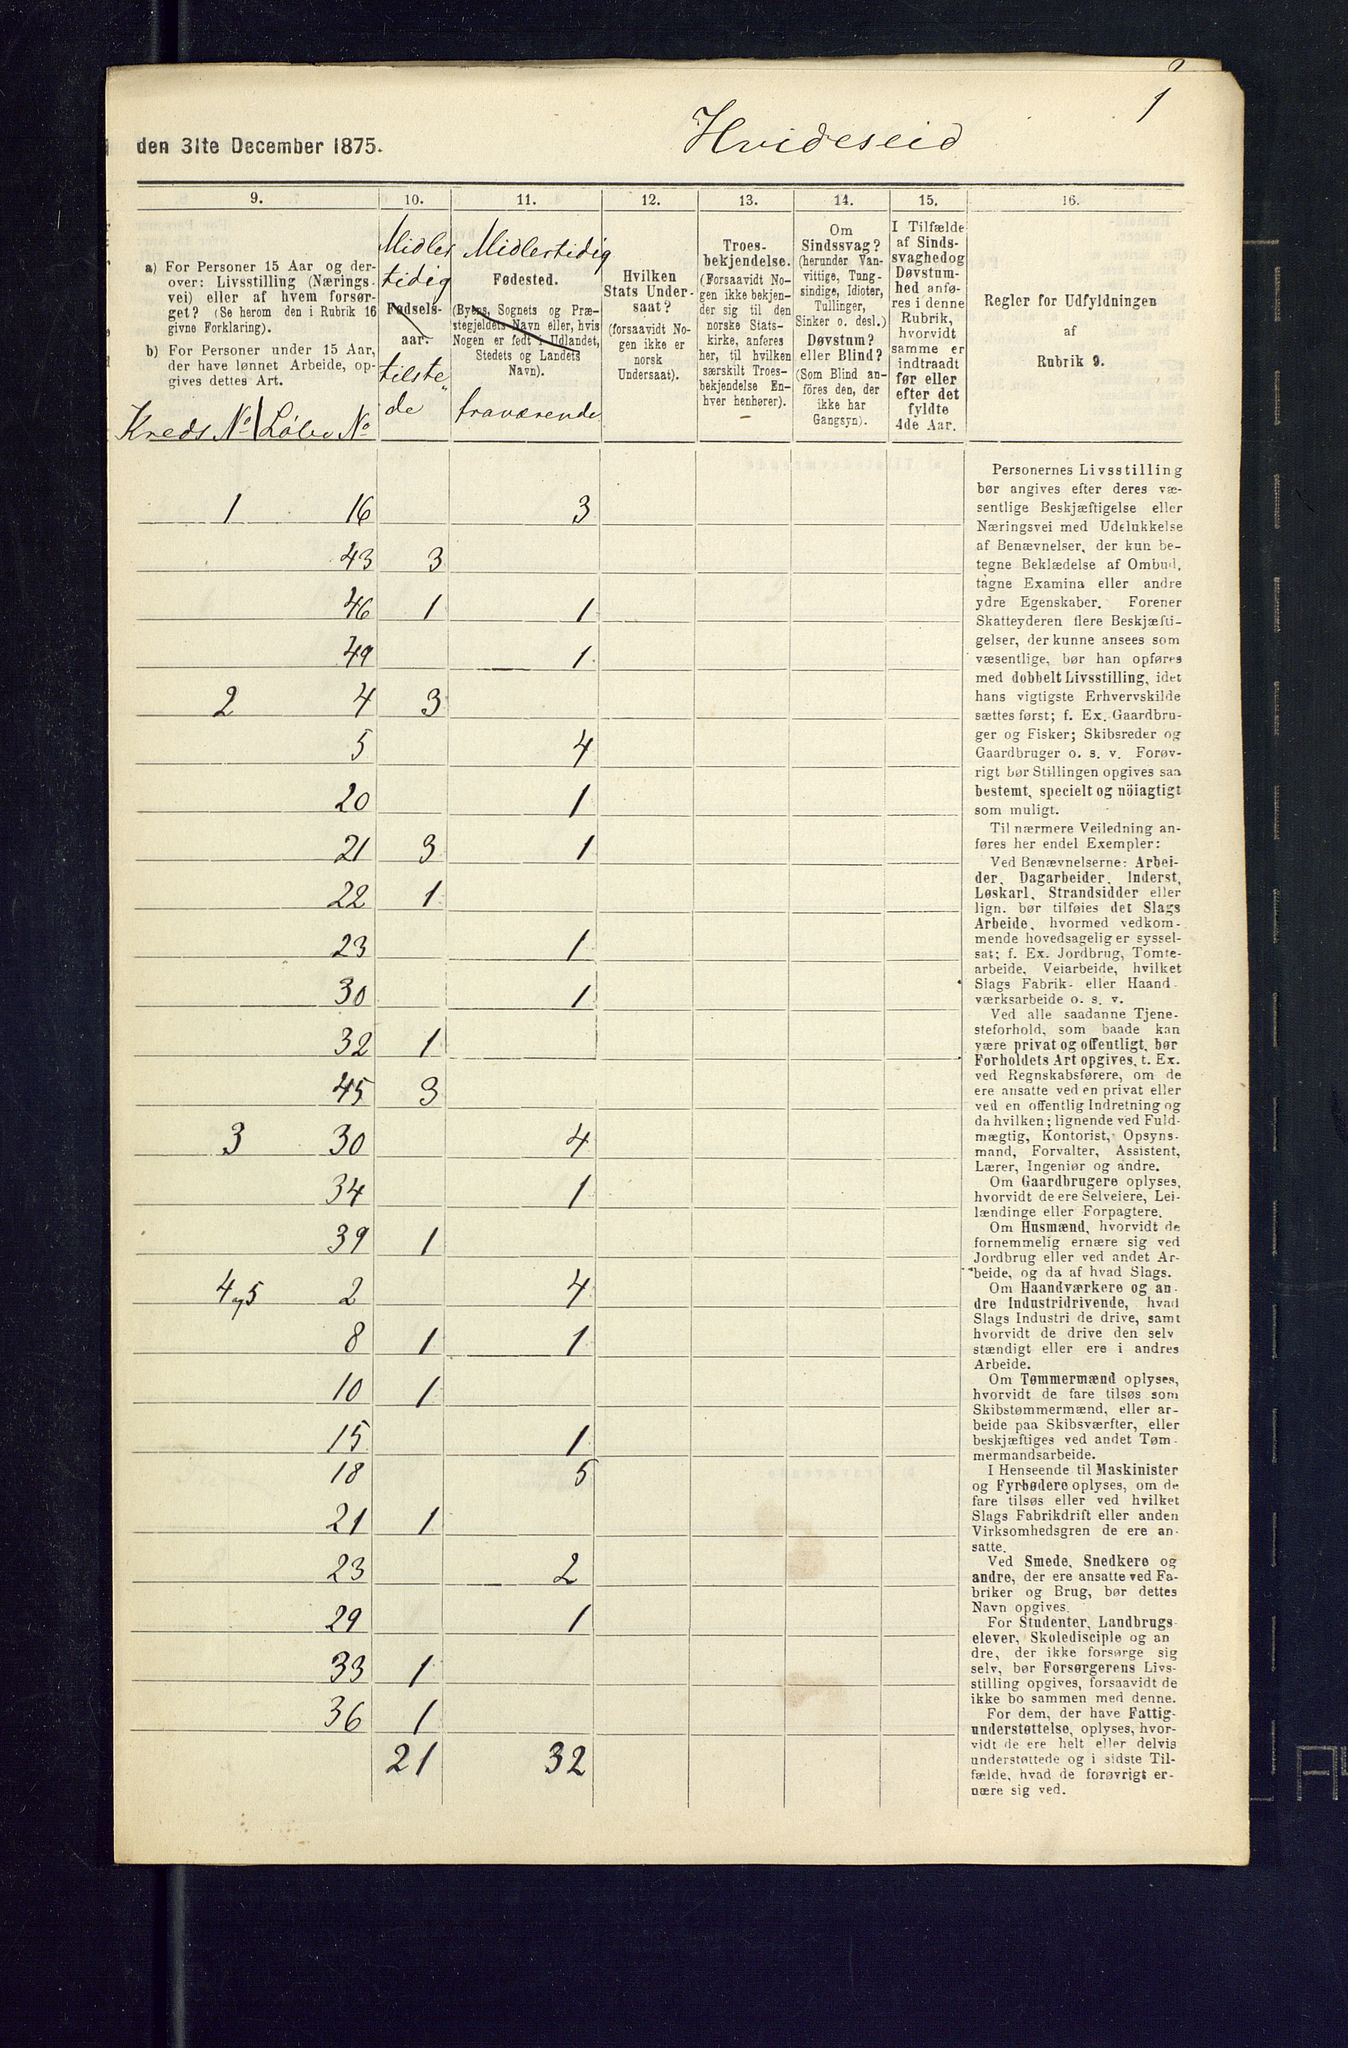 1
den 31te December 1875.
Hvideseid
9. 10. 11. 12. 13. 14. 15. 16.
a) For Personer 15 Aar og der-
over: Livsstilling (Nærings-
vei) eller af hvem forsør-
get? (Se herom den i Rubrik 16
givne Forklaring).
b) For Personer under 15 Aar,
der have lønnet Arbeide, op-
gives dettes Art.
Kreds No Løbe No
Midler
tidig
Fødsels-
aar.
tilste„
de
Midlertidig
Fødested.
(Byens, Sognets og Præ-
stegjeldets Navn eller, hvis
Nogen er født i Udlandet,
Stedets og Landets
Navn).
fraværende
Hvilken
Stats Under-
saat?
(forsaavidt No-
gen ikke er
norsk
Undersaat).
Troes-
bekjendelse.
(Forsaavidt No-
gen ikke bekjen-
der sig til den
norske Stats-
kirke, anføres
her, til hvilken
særskilt Troes-
bekjendelse En-
hver henhører).
Om
Sindssvag?
(herunder Van-
vittige, Tung-
sindige, Idioter,
Tullinger,
Sinker o. desl.)
Døvstum?
eller Blind?
(Som Blind an-
føres den, der
ikke har
Gangsyn).
I Tilfælde
af Sinds-
svaghed og
Døvstum-
hed anfø-
res i denne
Rubrik,
hvorvidt
samme er
indtraadt
før eller
efter det
fyldte
4de Aar.
Regler for Udfyldningen
af
Rubrik 9.
1 16 3
43 3
46 1 1
49 1
2 4 3
5 4
20 1
21 3 1
22 1
23 1
30 1
32 1
45 3
3 30 4
34 1
39 1
4 og 5 2 4
8 1 1
10 1
15 1
18 5
21 1
23 2
29 1
33 1
36 1
21 32
Personernes Livsstilling
bør angives efter deres væ-
sentlige Beskjæftigelse eller
Næringsvei med Udelukkelse
af Benævnelser, der kun be-
tegne Beklædelse af Ombud,
tagne Examina eller andre
ydre Egenskaber. Forener
Skatteyderen flere Beskjæfti-
gelser, der kunne ansees som
væsentlige, bør han opføres
med dobbelt Livsstilling, idet
hans vigtigste Erhvervskilde
sættes først; f. Ex. Gaardbru-
ger og Fisker; Skibsreder og
Gaardbruger o. s. v. Forøv-
rigt bør Stillingen opgives saa
bestemt, specielt og nöiagtigt
som muligt.
Til nærmere Veiledning an-
føres her endel Exempler:
Ved Benævnelserne: Arbei-
der, Dagarbeider, Inderst,
Løskarl, Strandsidder eller
lign. bør tilføies det Slags
Arbeide, hvormed vedkom-
mende hovedsagelig er syssel-
sat; f. Ex. Jordbrug, Tomte-
arbeide, Veiarbeide, hvilket
Slags Fabrik- eller Haand-
værksarbeide o. s. v.
Ved alle saadanne Tjene-
steforhold, som baade kan
være privat og offentligt, bør
Forholdets Art opgives, t. Ex.
ved Regnskabsførere, om de
ere ansatte ved en privat eller
ved en offentlig Indretning og
da hvilken; lignende ved Fuld-
mægtig, Kontorist, Opsyns-
mand, Forvalter, Assistent,
Lærer, Ingeniør og andre.
Om Gaardbrugere oplyses,
hvorvidt de ere Selveiere, Lei-
lændinge eller Forpagtere.
Om Husmænd, hvorvidt de
fornemmelig ernære sig ved
Jordbrug eller ved andet Ar-
beide, og da af hvad Slags.
Om Haandværkere og an-
dre Industridrivende, hvad
Slags Industri de drive, samt
hvorvidt de drive den selv-
stændigt eller ere i andres
Arbeide.
Om Tømmermænd oplyses,
hvorvidt de fare tilsøs som
Skibstømmermænd, eller ar-
beide paa Skibsværfter, eller
beskjæftiges ved andet Tøm-
mermandsarbeide.
I Henseende til Maskinister
og Fyrbødere oplyses, om de
fare tilsøs eller ved hvilket
Slags Fabrikdrift eller anden
Virksomhedsgren de ere an-
satte.
Ved Smede, Snedkere og
andre, der ere ansatte ved Fa-
briker og Brug, bør dettes
Navn opgives.
For Studenter, Landbrugs-
elever, Skoledisciple og an-
dre, der ikke forsørge sig
selv, bør Forsørgerens Livs-
stilling opgives, forsaavidt de
ikke bo sammen med denne.
For dem, der have Fattig-
understøttelse, oplyses, hvor-
vidt de ere helt eller delvis
understøttede og i sidste Til-
fælde, hvad de forøvrigt er-
nære sig ved.